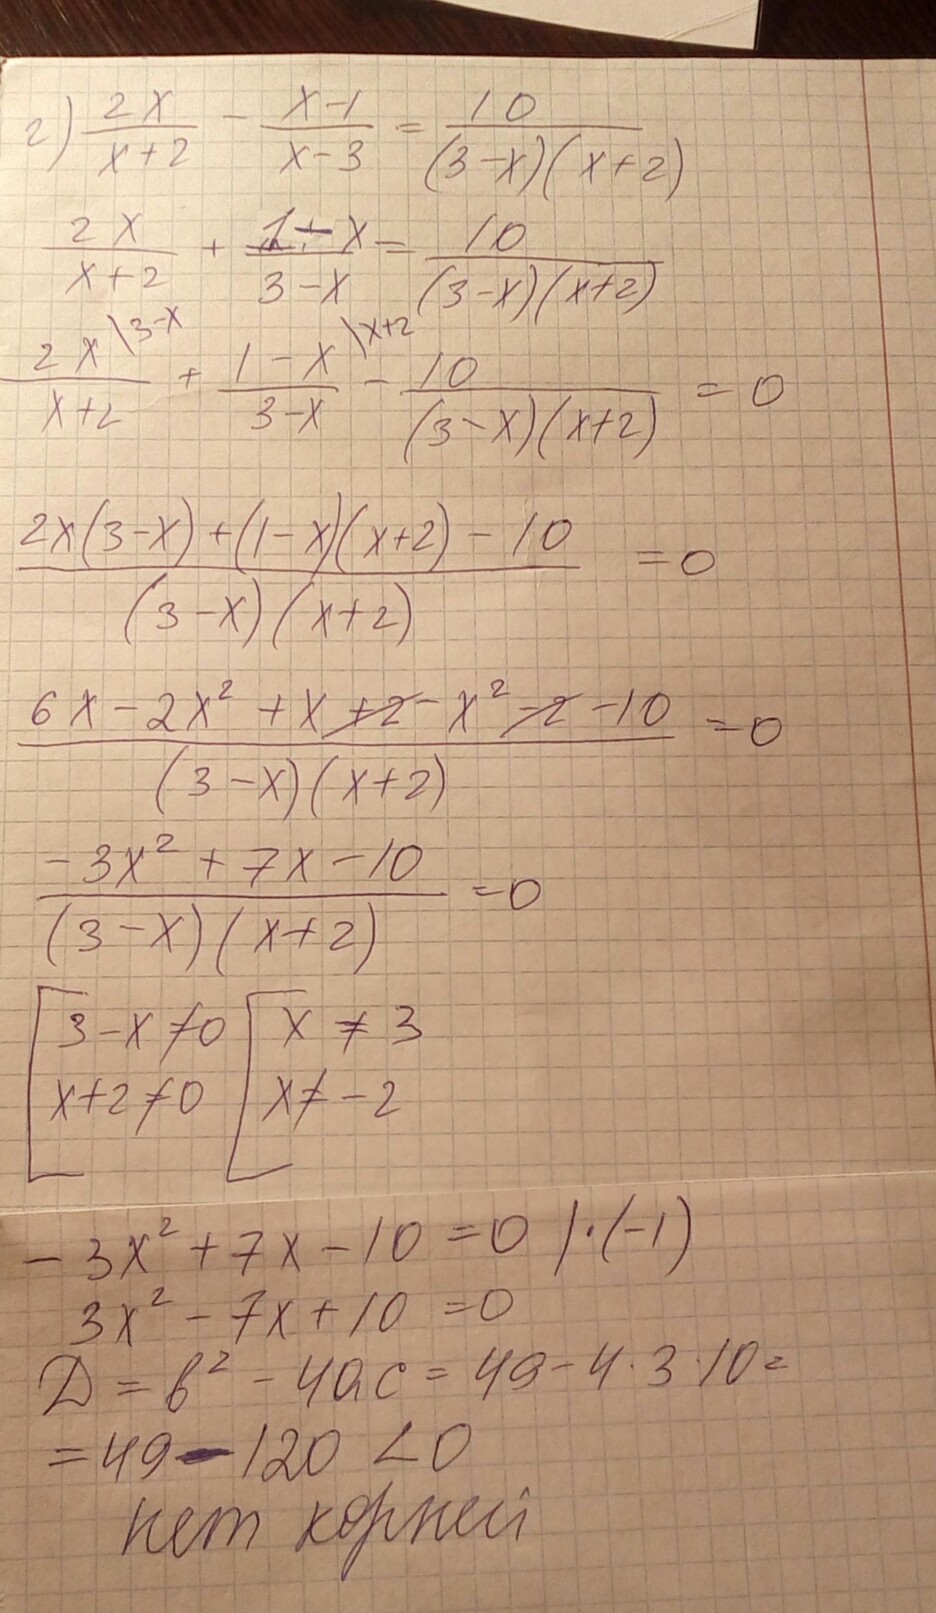 г) 2x/(x+2) - (x-1)/(x-3) = 10/((3-x)(x+2))
2x/(x+2) + (1-x)/(3-x) = 10/((3-x)(x+2))
2x\3-x/(x+2) + (1-x)\x+2/(3-x) - 10/((3-x)(x+2)) = 0
(2x(3-x)+(1-x)(x+2)-10)/((3-x)(x+2)) = 0
(6x-2x²+x+2-x²-2-10)/((3-x)(x+2)) = 0
(-3x²+7x-10)/((3-x)(x+2)) = 0
[3-x≠0 [x≠3
x+2≠0 x≠-2
-3x²+7x-10=0 |·(-1)
3x²-7x+10=0
D=b²-4ac=49-4·3·10=
=49-120<0
нет корней